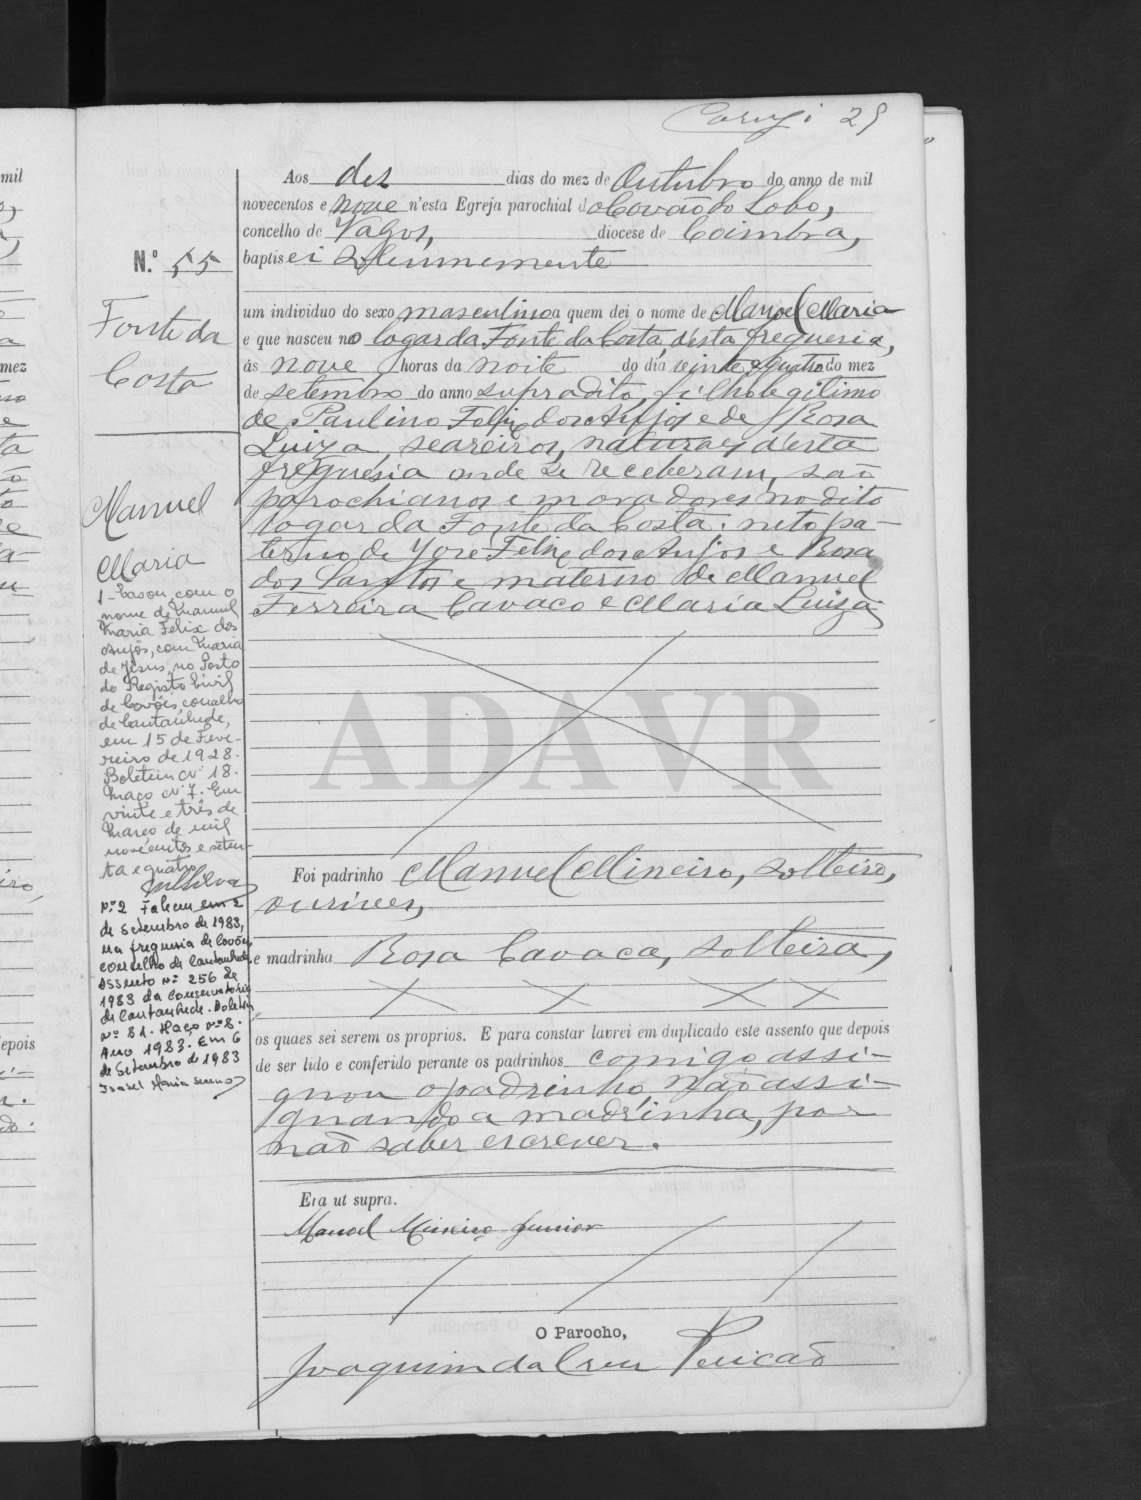 29
Aos dez dias do mez de Outubro do anno de mil
novecentos e nove n'esta Egreja parochial do Covão do Lobo,
concelho de Vagos, diocese de Coimbra,
N.º 55
baptisei solemnemente
Fonte da
Costa
um individuo do sexo masculino a quem dei o nome de Manoel Maria
e que nasceu no logar da Fonte da Costa, d'esta freguesia,
ás nove horas da noite do dia vinte e quatro do mez
de setembro do anno supradito, filho legitimo
de Paulino Felix dos Anjos e de Rosa
Luiza, seareiros, naturaes d'esta
freguesia onde se receberam, são
parochianos e moradores no dito
logar da Fonte da Costa: neto pa-
terno de José Felix dos Anjos e Rosa
dos Santos e materno de Manuel
Ferreira Cavaco e Maria Luiza.
Manuel
Maria
1 - Casou, com o
nome de Manuel
Maria Felix dos
Anjos, com Maria
de Jesus, no Posto
do Registo Civil
de Covões, concelho
de Cantanhede,
em 15 de Feve-
reiro de 1928.
Boletim Nº 18.
Maço Nº 7. Em
vinte e três de
Março de mil
novecentos e seten-
ta e quatro
MSilva
Nº 2 Faleceu em 2
de Setembro de 1983,
na freguesia de Covões,
concelho de Cantanhede.
Assento nº 256 de
1983 da Conservatória
de Cantanhede. Boletim
nº 81. Maço nº 8.
Ano 1983. Em 6
de Setembro de 1983
Isabel Maria
ADAVR
Foi padrinho Manuel Mineiro, solteiro,
ourives,
e madrinha Rosa Cavaca, solteira,
os quaes sei serem os proprios. E para constar lavrei em duplicado este assento que depois
de ser lido e conferido perante os padrinhos comigo assi-
gnou o padrinho, não assi-
gnando a madrinha, por
não saber escrever.
Era ut supra.
Manoel Mineiro Junior
O Parocho,
Joaquim da Cruz